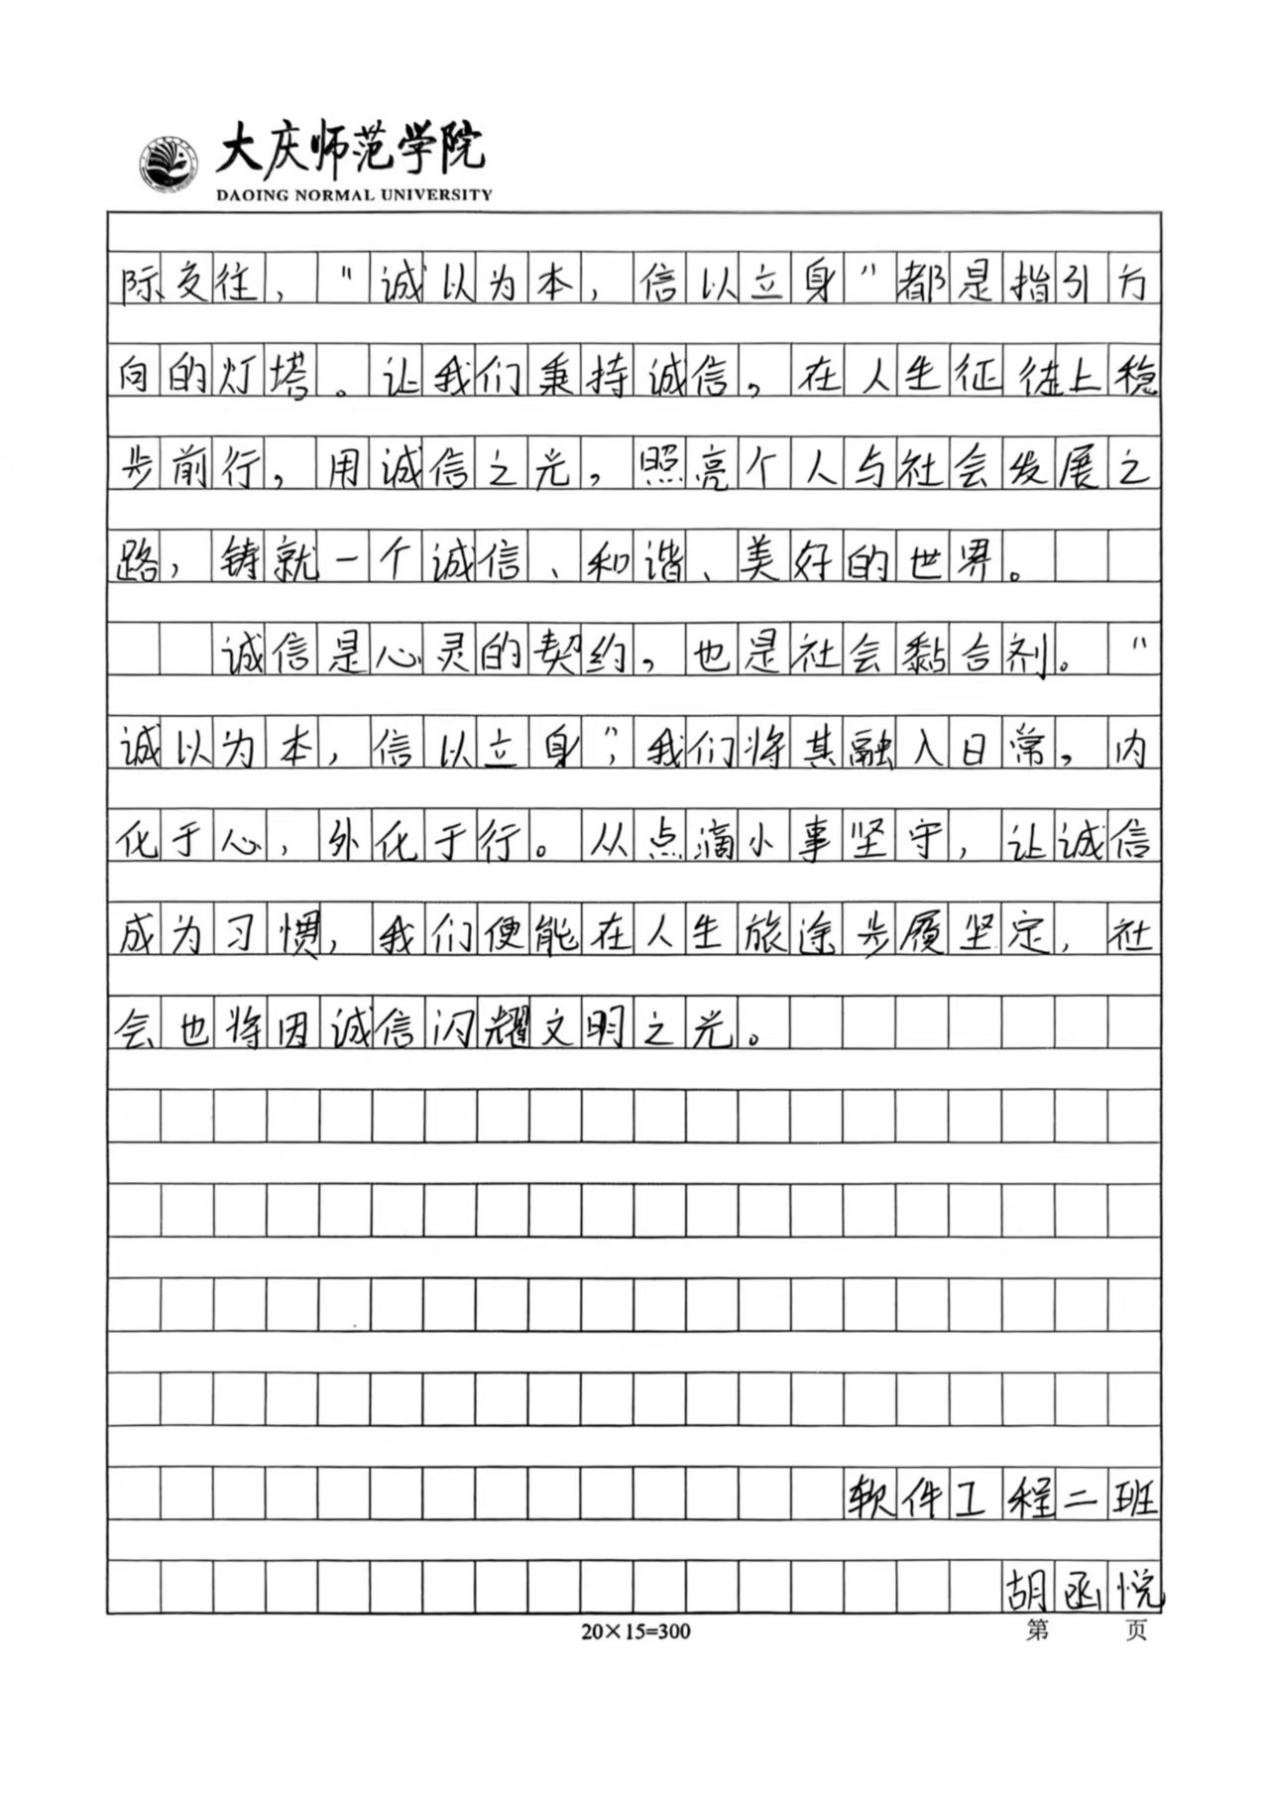 大庆师范学院
DAQING NORMAL UNIVERSITY
际交往，“诚以为本，信以立身”都是指引方
向的灯塔。让我们秉持诚信，在人生征途上稳
步前行，用诚信之光，照亮个人与社会发展之
路，铸就一个诚信、和谐、美好的世界。
诚信是心灵的契约，也是社会黏合剂。“
诚以为本，信以立身”，我们将其融入日常，内
化于心，外化于行。从点滴小事坚守，让诚信
成为习惯，我们便能在人生旅途步履坚定，社
会也将因诚信闪耀文明之光。
软件工程二班
胡函悦
20×15=300
第 页